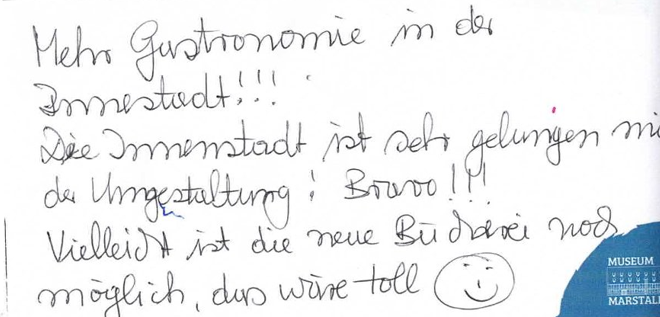 Mehr Gastronomie in der
Innestadt!!!
Die Innenstadt ist sehr gelungen mi
der Umgestaltung! Bravo!!!
Vielleicht ist die neue Bücherei noch
möglich, das wäre toll
MUSEUM
MARSTALL